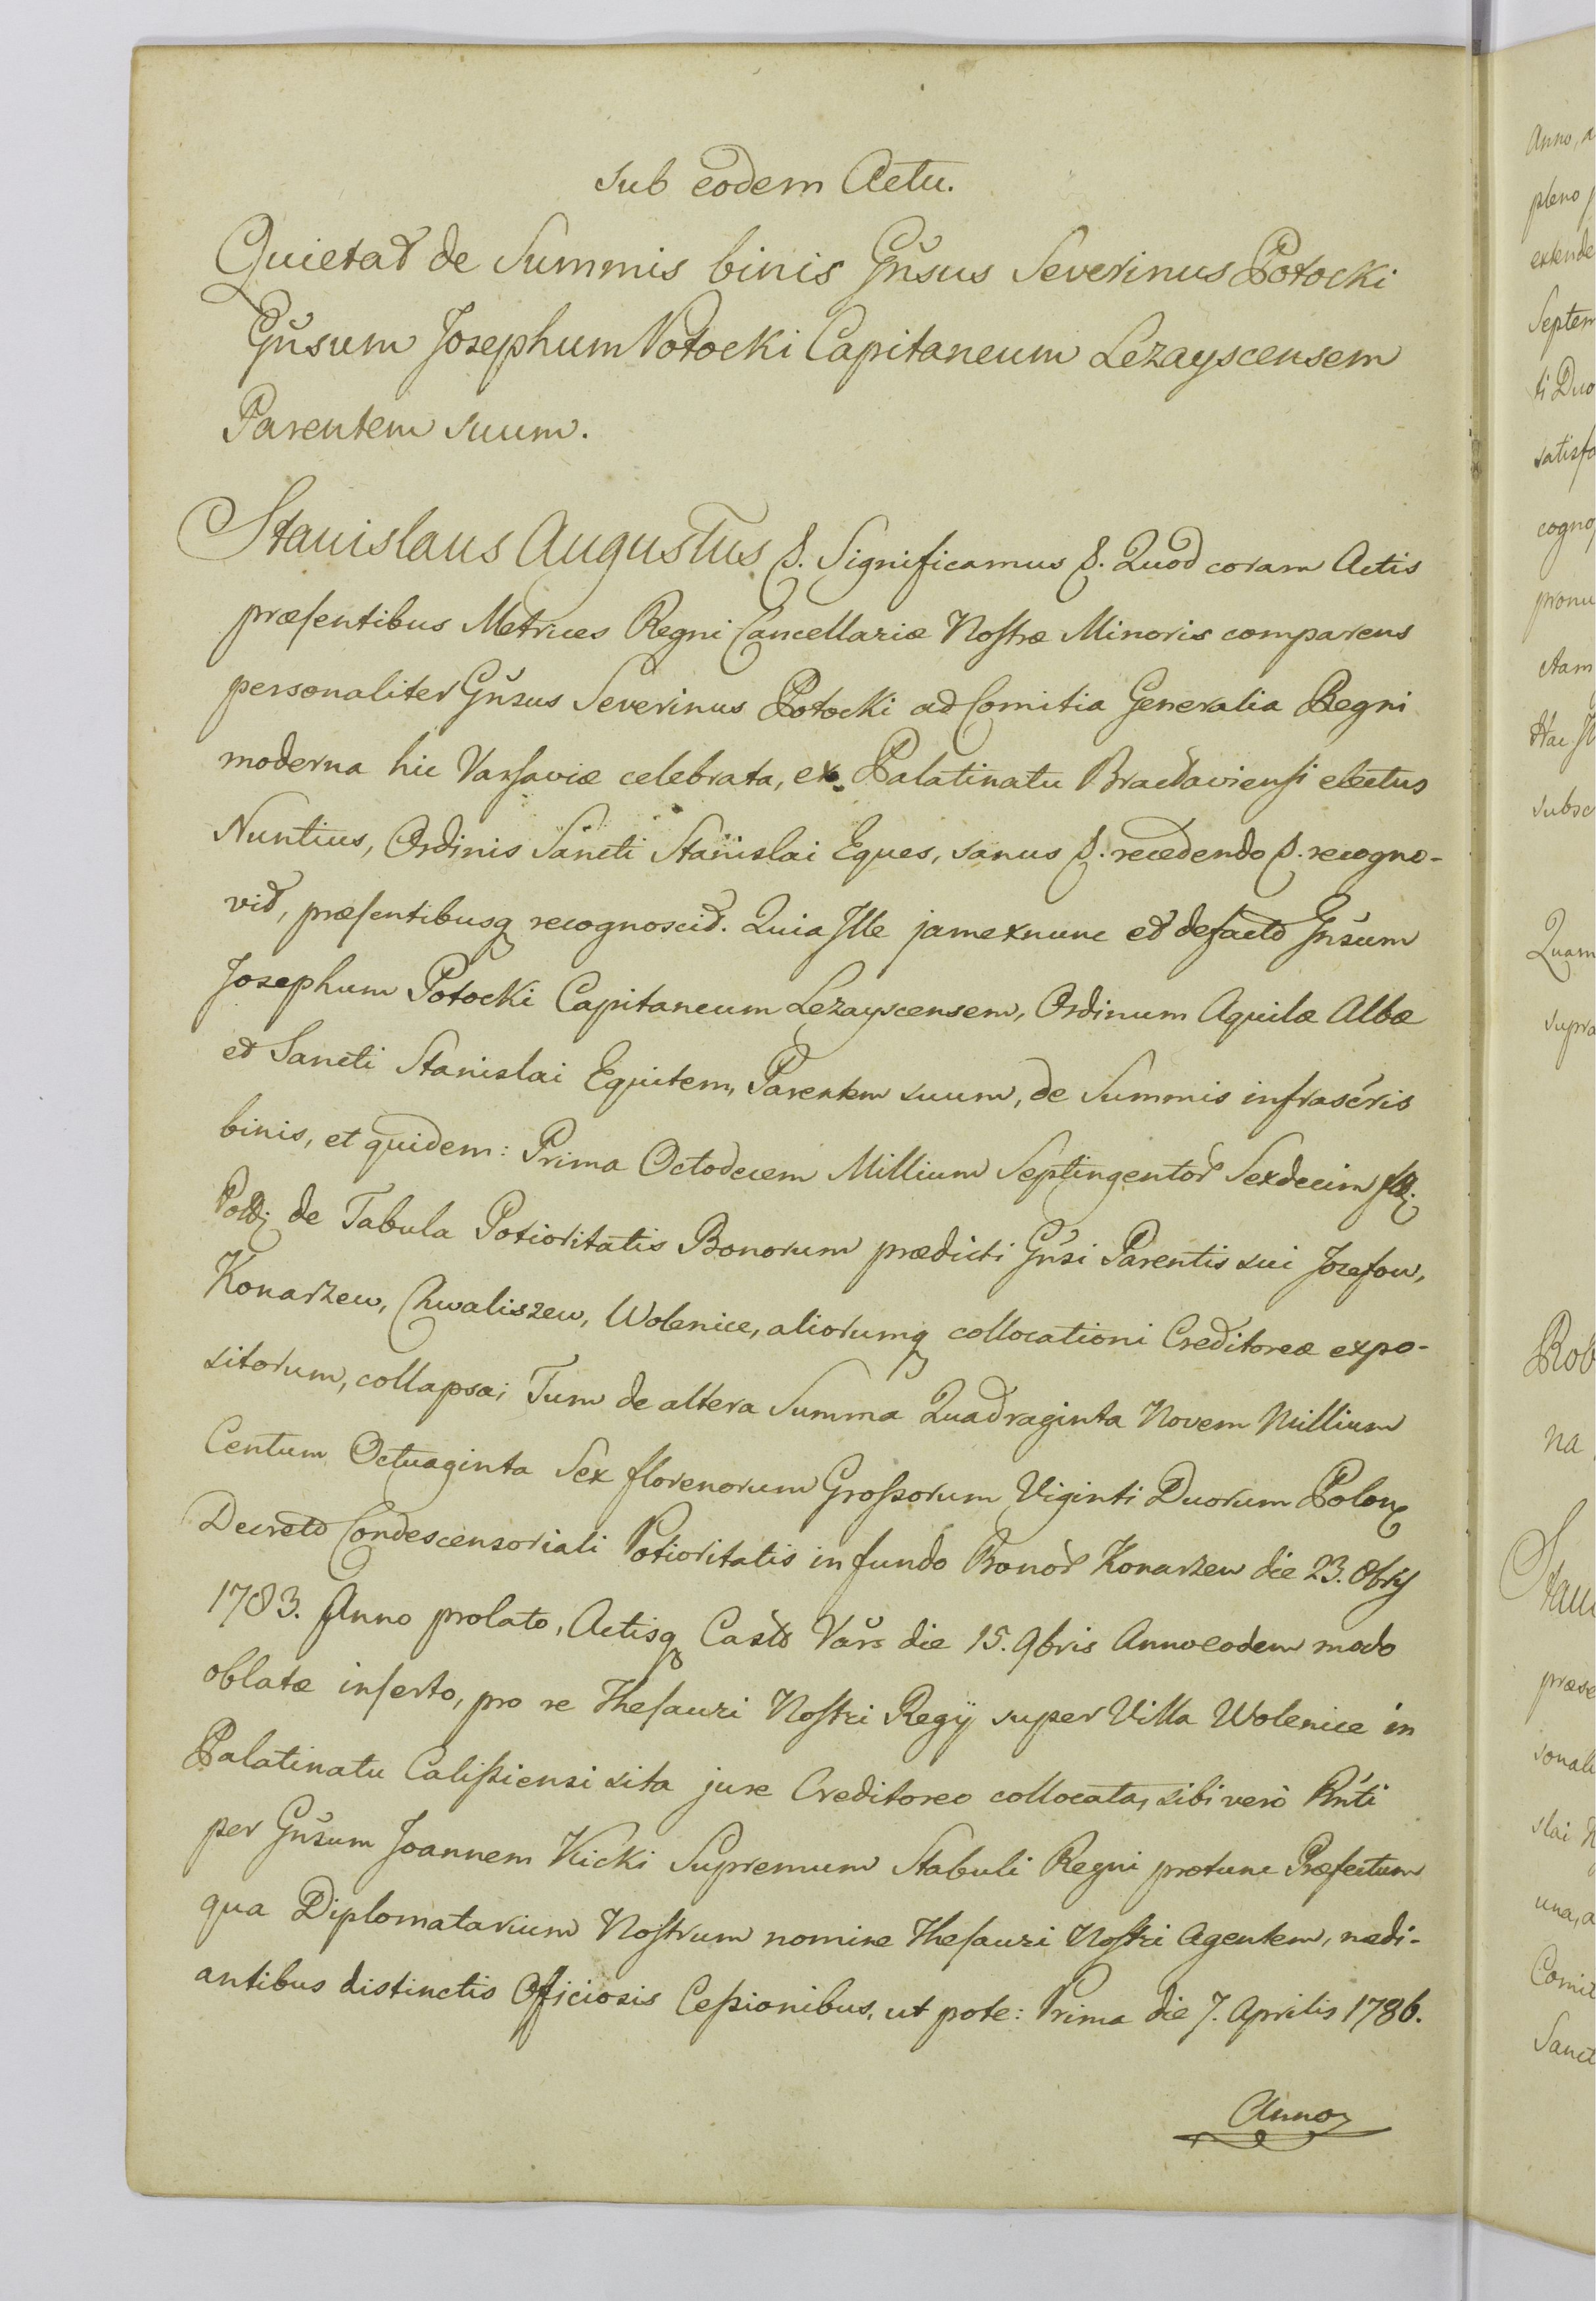 sub eodem Actu.
Quietat de Summis binis Gñsus Severinus Potocki
Gñsum Josephum Potocki Capitaneum Lezayscensem
Parentem suum.
Stanislaus Augustus &. Significamus &. Quod coram Actis
præsentibus Metrices Regni Cancellariæ Nostræ Minoris comparens
personaliter Gñsus Severinus Potocki ad Comitia Generalia Regni
moderna hic Varsaviæ celebrata, ex Palatinatu Braclaviensi electus
Nuntius, Ordinis Sancti Stanislai Eques, sanus &. recedendo &. recogno-
vit, præsentibusq recognoscit. Quia Ille jamexnunc et defacto Gñsum
Josephum Potocki Capitaneum Lezayscensem, Ordinum Aquilæ Albæ
et Sancti Stanislai Equitem, Parentem suum, de Summis infrascris
binis, et quidem: Prima Octodecem Millium Septingentor Sexdecim
de Tabula Potioritatis Bonorum prædicti Gñsi Parentis sui Jozefow,
Konarzew, Chwaliszew, Wolenice, aliorumq collocationi Creditoreæ expo-
sitorum, collapsa; Tum de altera Summa Quadraginta Novem Millium
Centum Octuaginta Sex florenorum Grossorum Viginti Duorum Polon
Decreto Condescensoriali Potioritatis in fundo Bonor Konarzew die 23. 8bris
1783. Anno prolato, Actisq Casts Vars die 15. 9bris Anno eodem modo
oblatæ inserto, pro re Thesauri Nostri Regij super Villa Wolenice in
Palatinatu Calissiensi sita jure Creditoreo collocata, sibi verò Pñti
per Gñsum Joannem Kicki Supremum Stabuli Regni protunc Præfectum
qua Diplomatarium Nostrum nomine Thesauri Nostri Agentem, medi-
antibus distinctis Officiosis Cessionibus, ut pote: Prima die 7. Aprilis 1786.
Anno